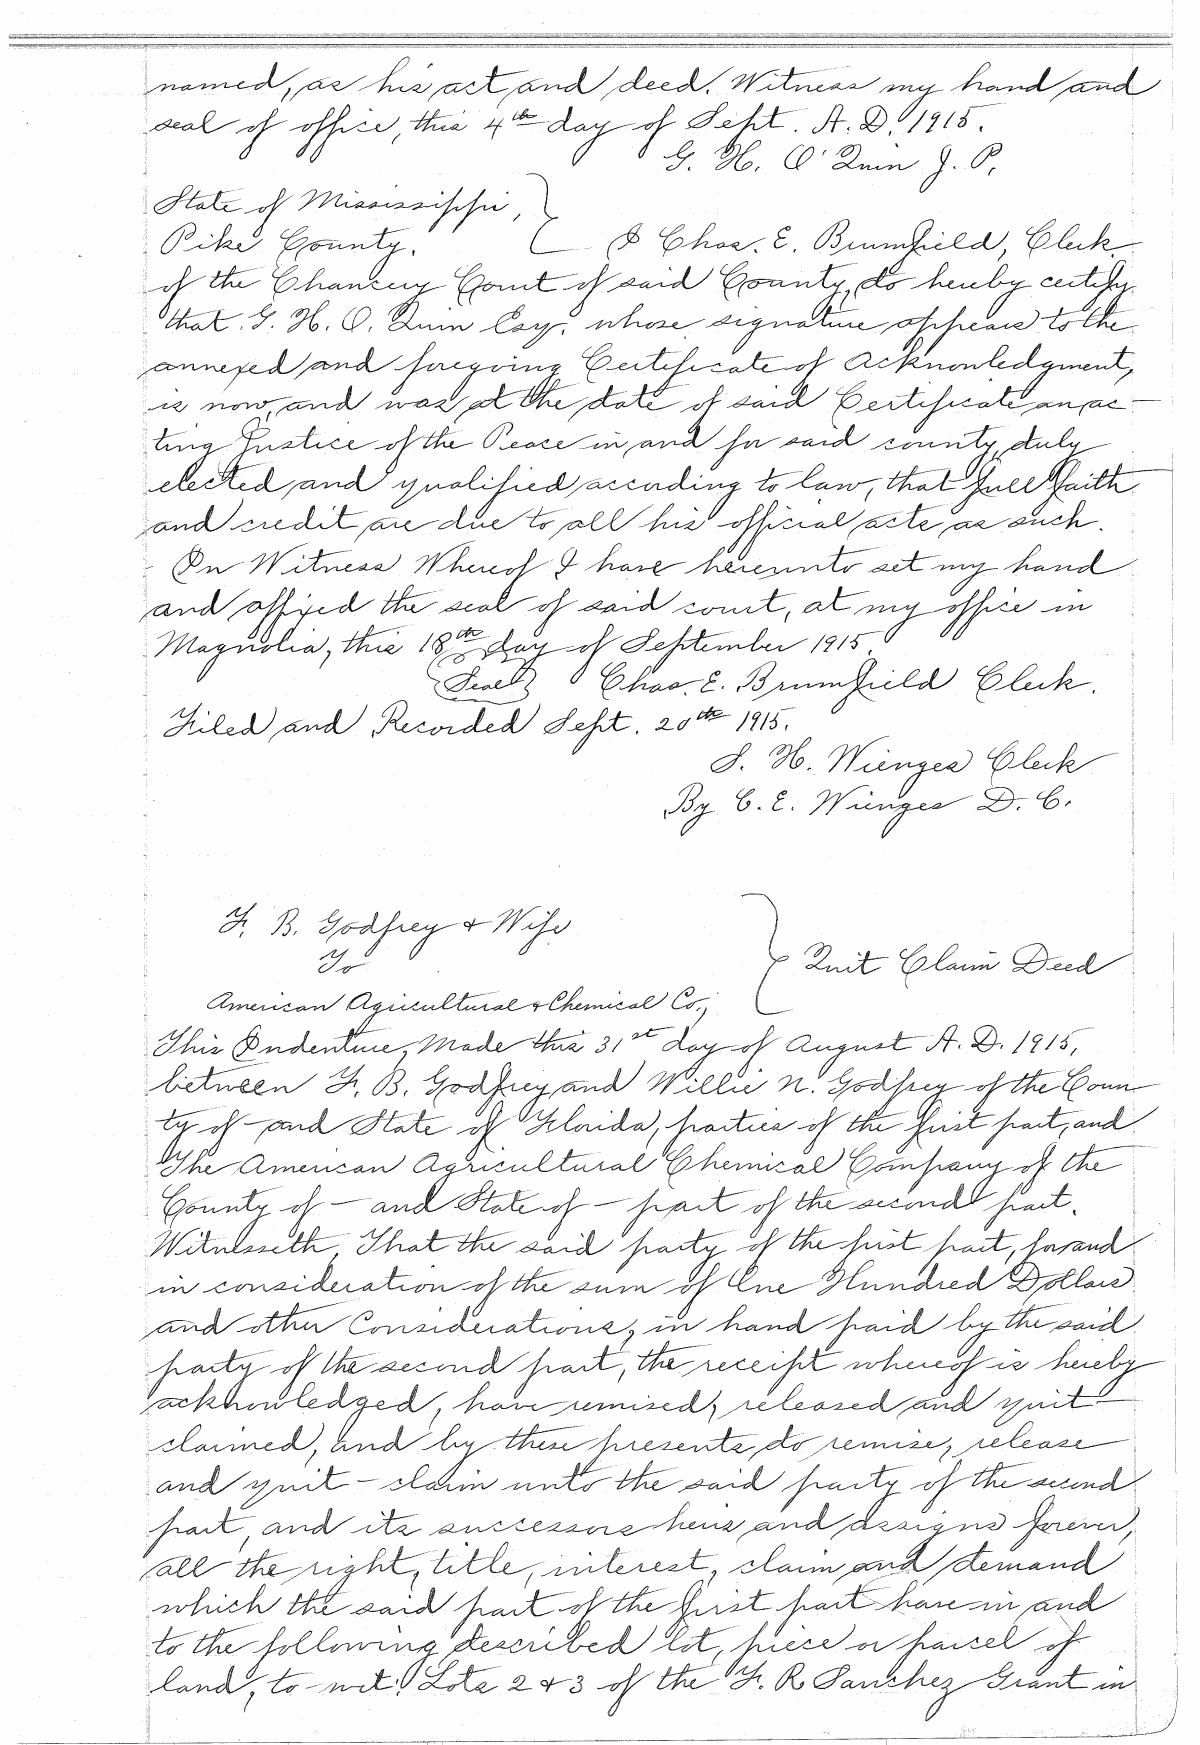 named, as his act and deed. Witness my hand and
seal of office, this 4th day of Sept. A. D. 1915.
G. H. O'Quin J. P.
State of Mississippi,
Pike County. I Chas. E. Brumfield, Clerk
of the Chancery Court of said County, do hereby certify
that G. H. O. Quin Esq. whose signature appears to the
annexed and foregoing Certificate of Acknowledgment,
is now, and was at the date of said Certificate an ac-
ting Justice of the Peace in and for said county, duly
elected and qualified according to law, that full faith
and credit are due to all his official acts as such.
In Witness Whereof I have hereunto set my hand
and affixed the seal of said court, at my office in
Magnolia, this 18th day of September 1915.
(Seal) Chas. E. Brumfield Clerk.
Filed and Recorded Sept. 20th 1915.
S. H. Wienges Clerk
By C. E. Wienges D. C.
F. B. Godfrey & Wife
To
Quit Claim Deed
American Agricultural & Chemical Co.,
This Indenture, Made this 31st day of August A. D. 1915,
between F. B. Godfrey and Willie N. Godfrey of the Coun
ty of - and State of Florida, parties of the first part, and
The American Agricultural Chemical Company of the
County of - and State of - part of the second part.
Witnesseth, That the said party of the first part, for and
in consideration of the sum of One Hundred Dollars
and other Considerations, in hand paid by the said
party of the second part, the receipt whereof is hereby
acknowledged, have remised, released and quit-
claimed, and by these presents, do remise, release
and quit-claim unto the said party of the second
part, and its successors heirs and assigns forever,
all the right, title, interest, claim and demand
which the said part of the first part have in and
to the following described lot, piece or parcel of
land, to-wit: Lots 2 & 3 of the F. R. Sanchez Grant in